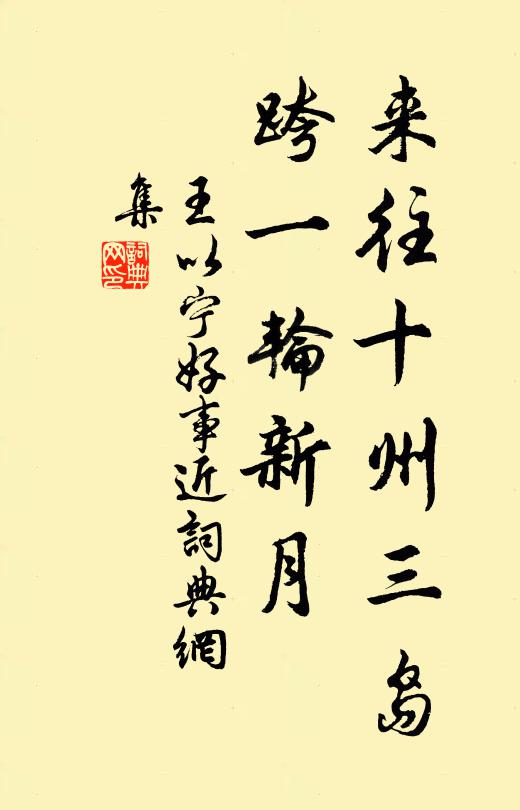 来往十州三島
跨一輪新月
王以宁好事近詞典網
集
詞典
网印